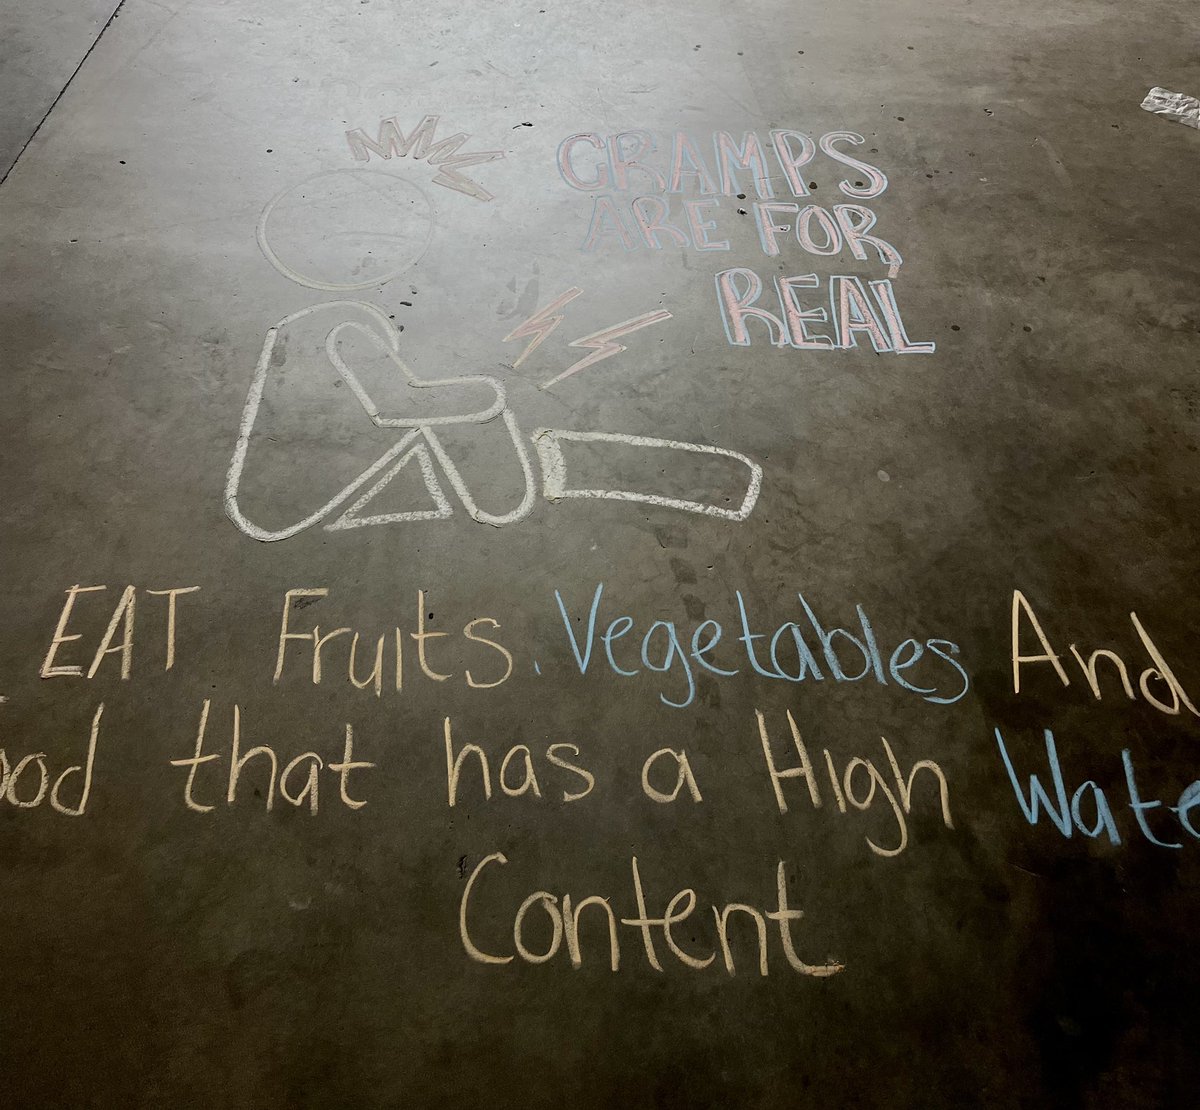 CRAMPS
ARE FOR
REAL
EAT Fruits. Vegetables And
food that has a High Wate
Content